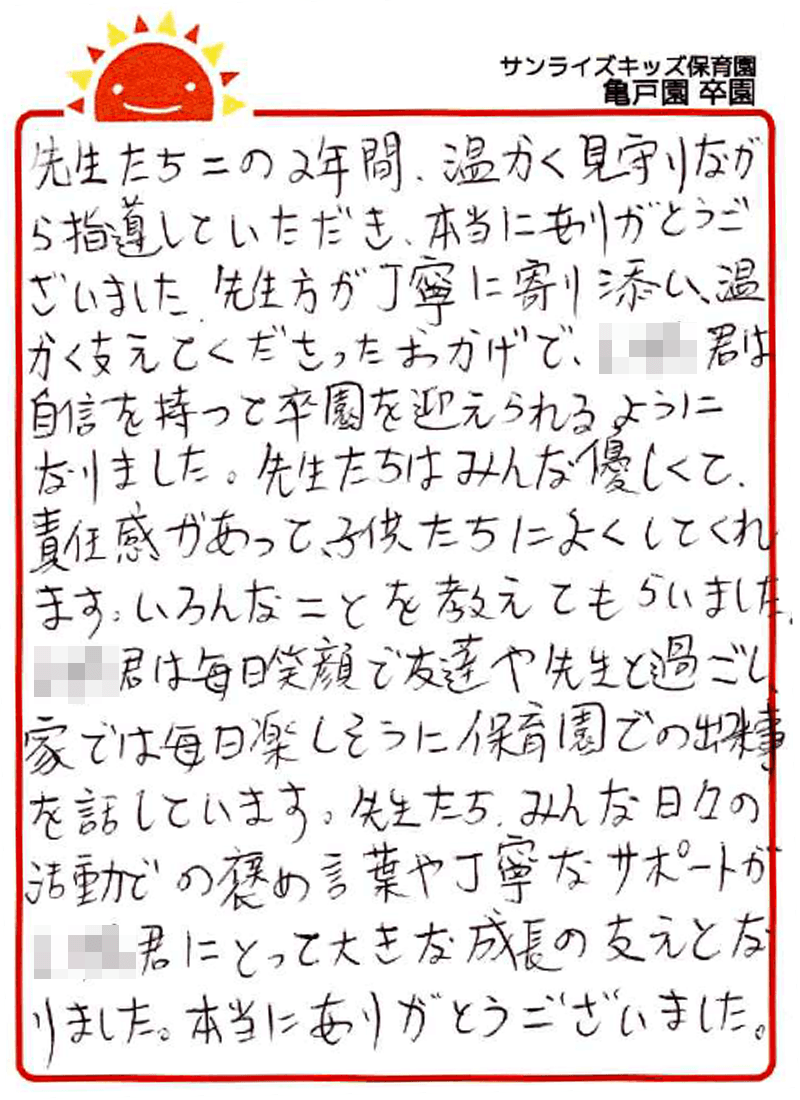 サンライズキッズ保育園
亀戸園 卒園
先生たちこの2年間、温かく見守りなが
ら指導していただき、本当にありがとうご
ざいました。先生方が丁寧に寄り添い、温
かく支えてくださったおかげで、君は
自信を持って卒園を迎えられるように
なりました。先生たちはみんな優しくて、
責任感があって、子供たちによくしてくれ
ます。いろんなことを教えてもらいました。
君は毎日笑顔で友達や先生と過ごし、
家では毎日楽しそうに保育園での出来事
を話しています。先生たち、みんな日々の
活動での褒め言葉や丁寧なサポートが
君にとって大きな成長の支えとな
りました。本当にありがとうございました。